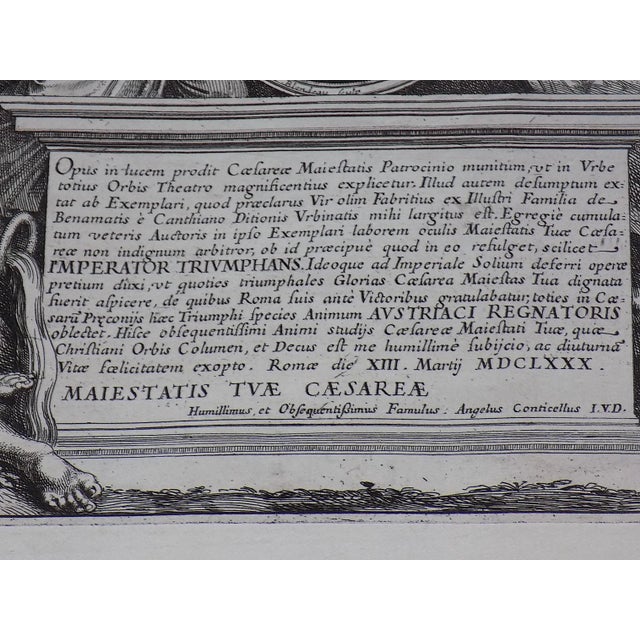 Blondeau Sculp
Opus in lucem prodit Cæsareæ Maiestatis Patrocinio munitum, vt in Vrbe
totius Orbis Theatro magnificentius explicetur. Illud autem desumptum ex-
tat ab Exemplari, quod præclarus Vir olim Fabritius ex Illustri Familia de
Benamatis è Canthiano Ditionis Vrbinatis mihi largitus est. Egregiè cumula-
tum veteris Auctoris in ipso Exemplari laborem oculis Maiestatis Tuæ Cæsa-
reæ non indignum arbitror, ob id præcipuè quod in eo refulget, scilicet
IMPERATOR TRIVMPHANS. Ideoque ad Imperiale Solium deferri operæ
pretium duxi, vt quoties triumphales Glorias Cæsarea Maiestas Tua dignata
fuerit aspicere, de quibus Roma suis antè Victoribus gratulabatur, toties in Cæ-
sarũ Pręconijs hæc Triumphi species Animum AVSTRIACI REGNATORIS
oblectet. Hisce obsequentissimi Animi studijs Cæsareæ Maiestati Tuæ, quæ
Christiani Orbis Columen, et Decus est me humillimè subijcio, ac diuturnã
Vitæ fœlicitatem exopto. Romæ die XIII. Martij MDCLXXX.
MAIESTATIS TVÆ CÆSAREÆ
Humillimus, et Obsequentissimus Famulus. Angelus Conticellus I.V.D.